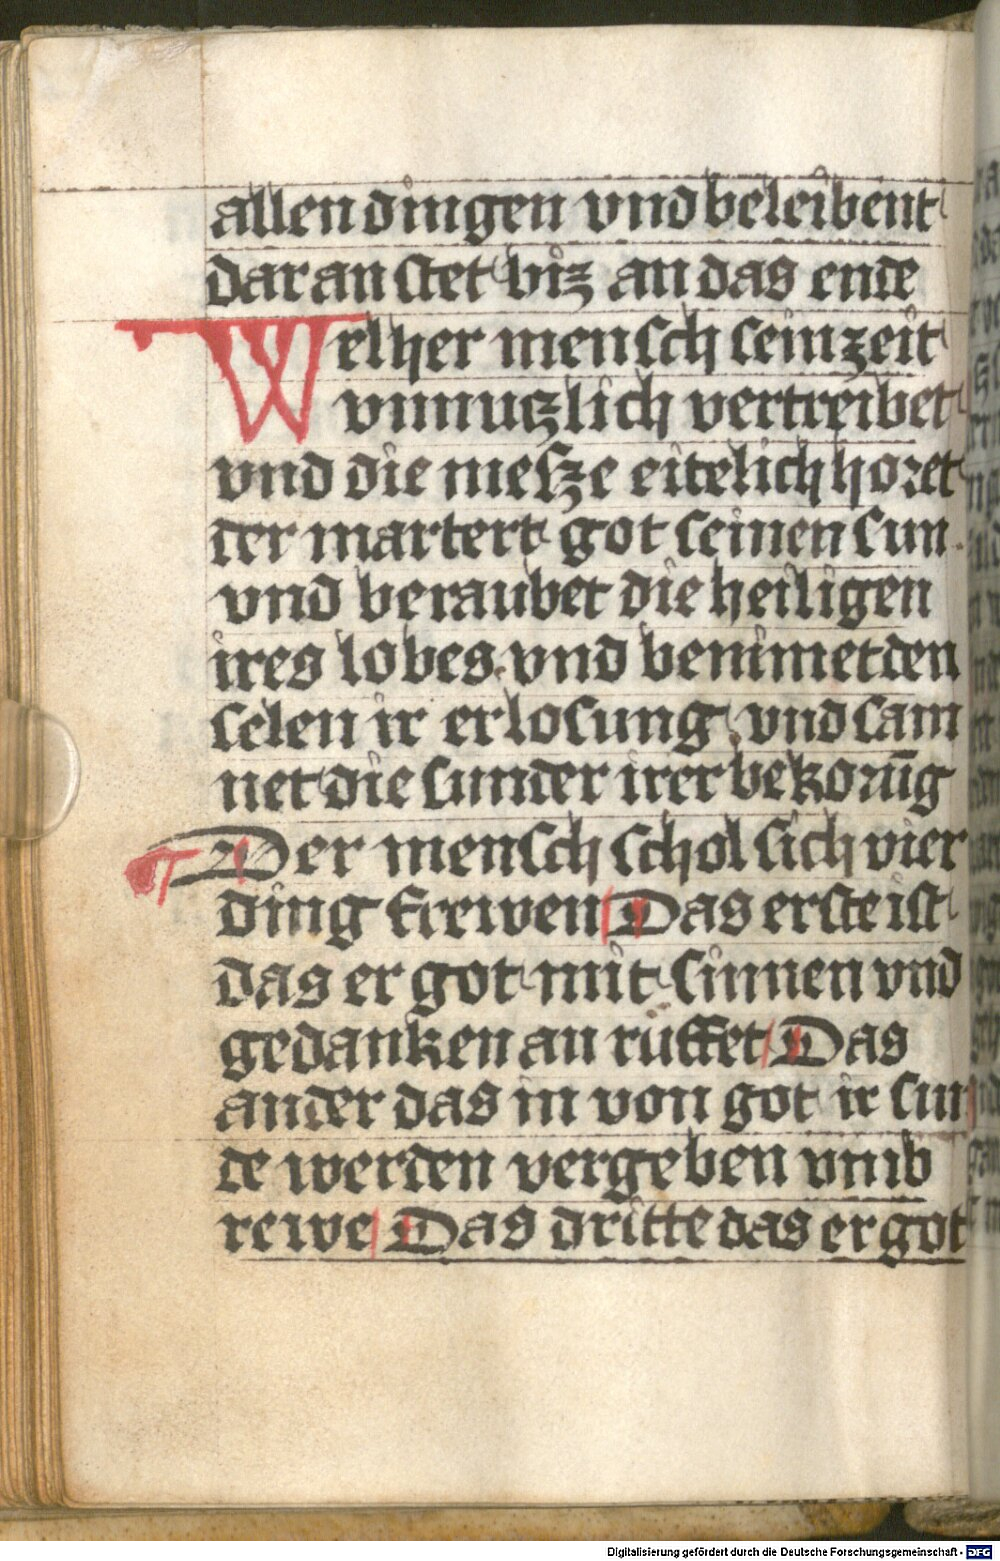 allen dingen vnd beleibent
dar an stet biz an das ende
Welher mensch sein zeit
vnnuczlich vertreibet
vnd die mesze eitelich horet
der martert got seinen sun
vnd beraubet die heiligen
ires lobes vnd benimet den
selen ir erlosung vnd sam
net die sunder irer bekorūg
Der mensch schol sich vier
ding frewen Das erste ist
das er got mit sinnen vnd
gedanken an ruffet Das
ander das in von got ir sun
de werden vergeben vmb
rewe Das dritte das er got
Digitalisierung gefördert durch die Deutsche Forschungsgemeinschaft - DFG